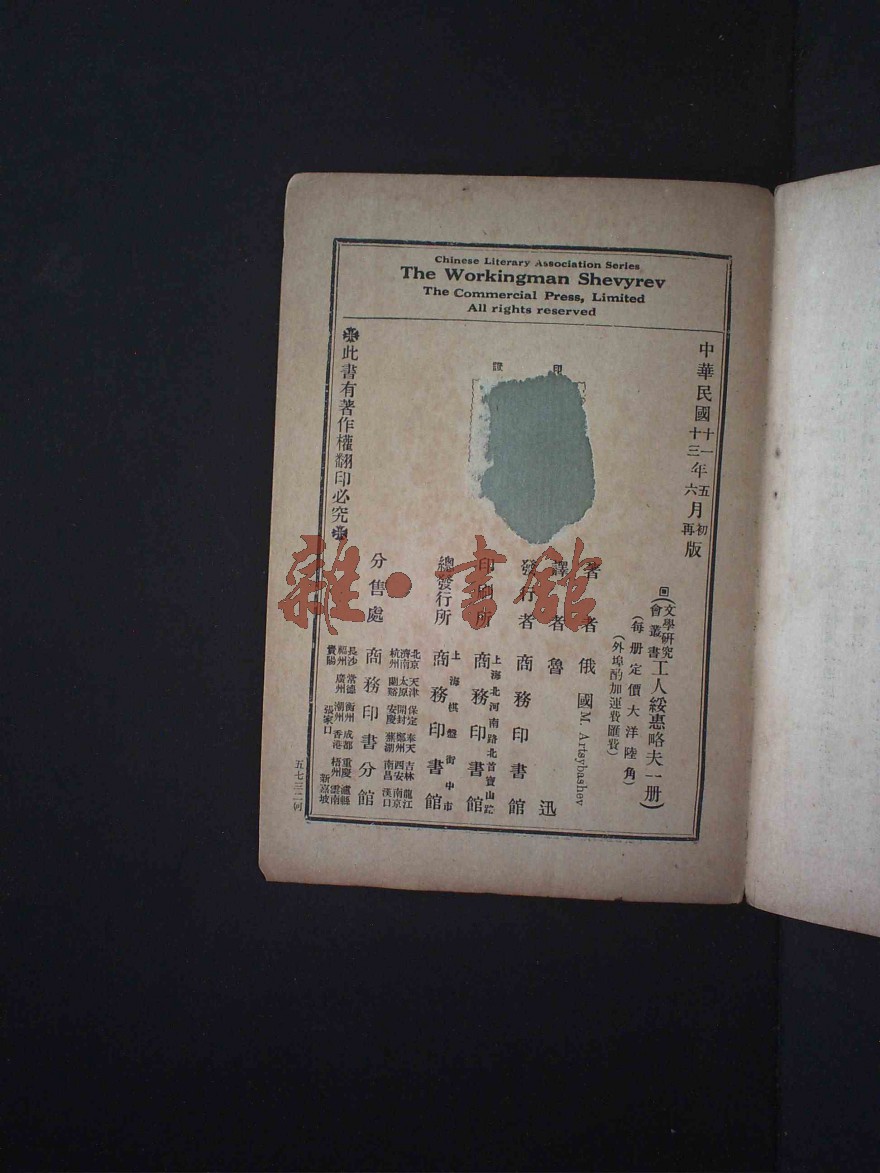 Chinese Literary Association Series
The Workingman Shevyrev
The Commercial Press, Limited
All rights reserved
中華民國十一年五月初版
十三年六月再版
回(文學研究會叢書工人綏惠略夫一册)
(每册定價大洋陸角)
(外埠酌加運費匯費)
印證
著者 俄國M. Artsybashev
譯者 魯迅
發行者 商務印書館
印刷所 上海北河南路北首寶山路 商務印書館
總發行所 上海棋盤街中市 商務印書館
分售處 商務印書分館
北京 天津 保定 奉天 吉林 龍江
濟南 太原 開封 鄭州 西安 南京
杭州 蘭谿 安慶 蕪湖 南昌 漢口
長沙 常德 衡州 成都 重慶 瀘縣
福州 廣州 潮州 香港 梧州 雲南
貴陽 張家口 新嘉坡
此書有著作權翻印必究
五七三二何
雜·書館